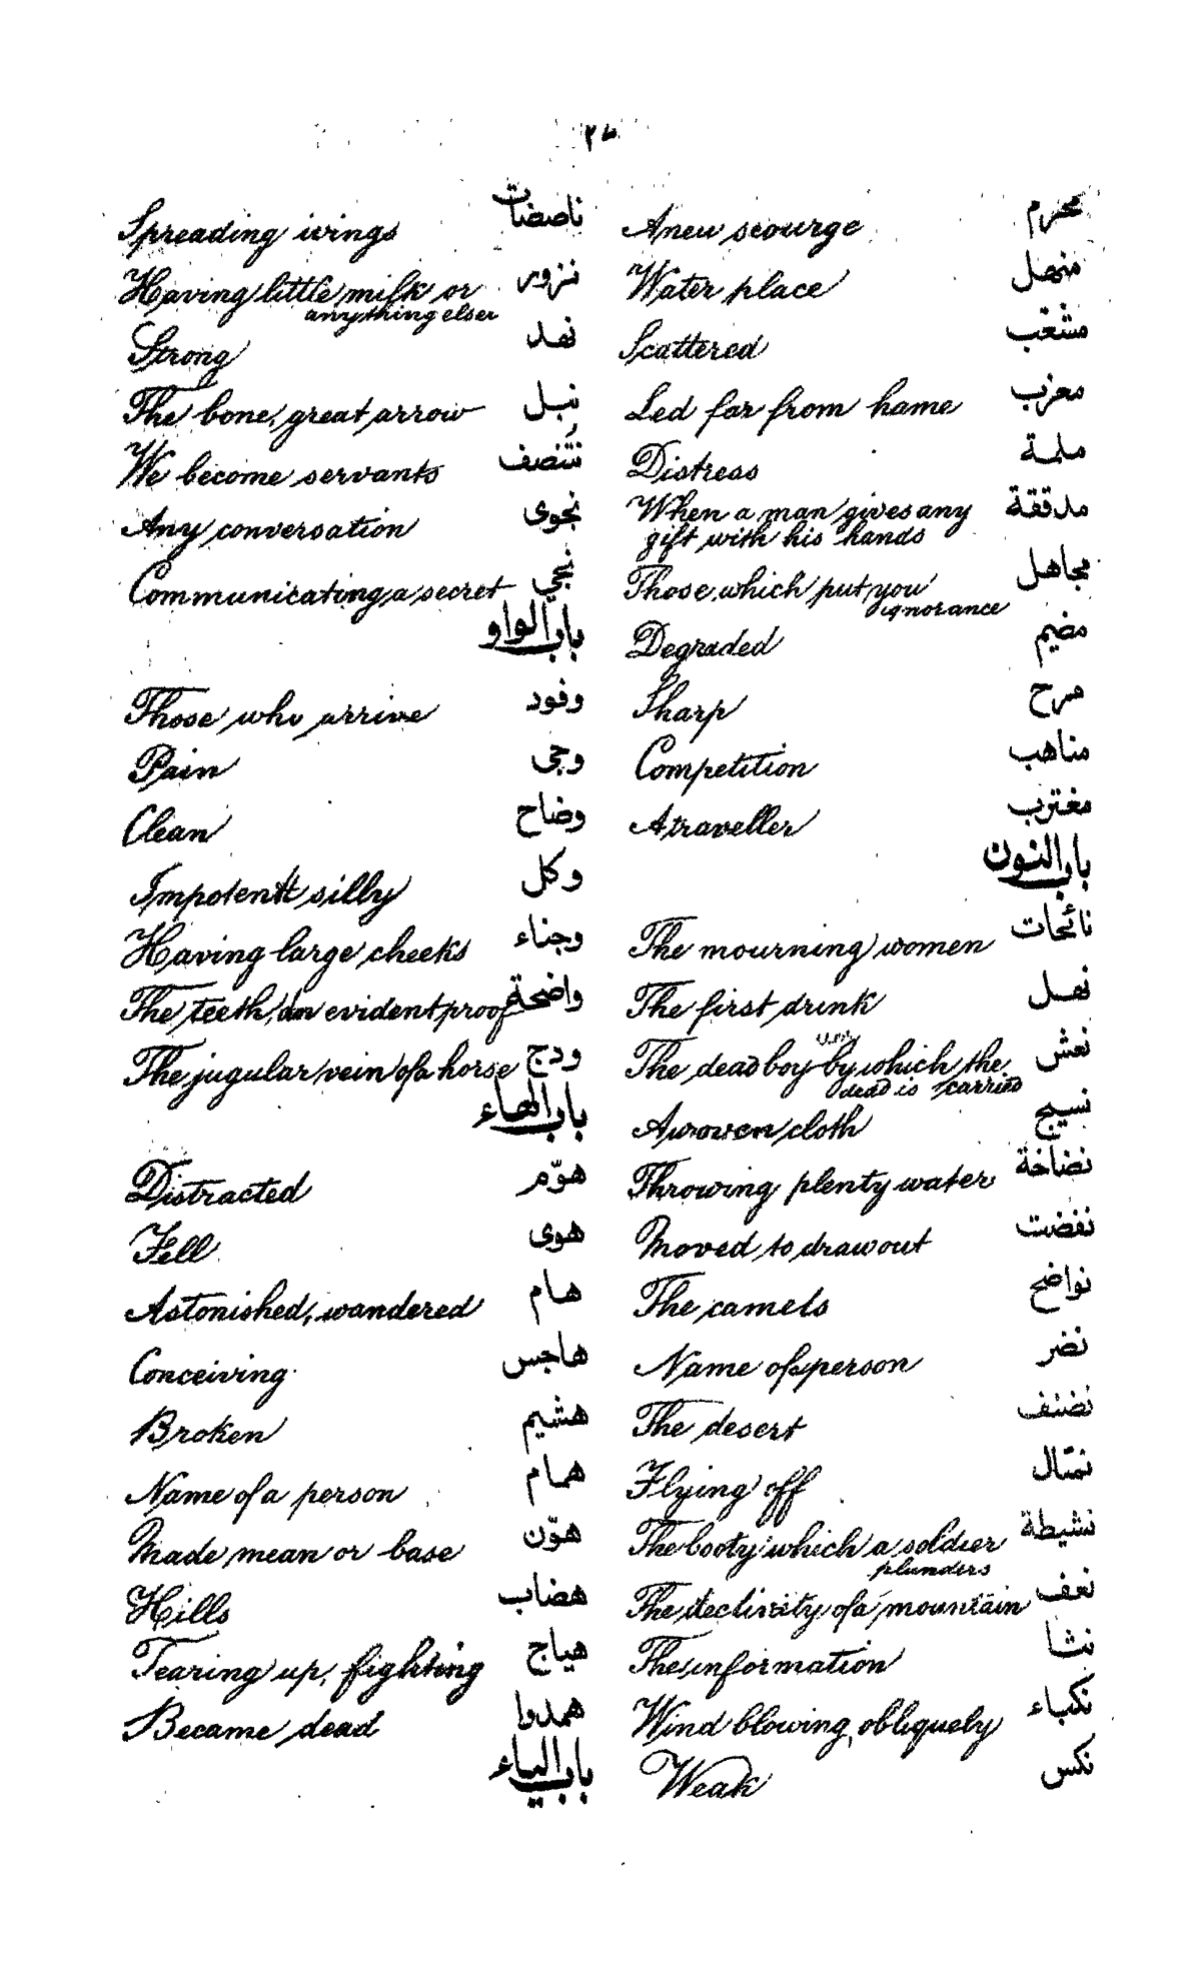 محرم Anew scourge
منهل Water place
مشعّب Scattered
معزب Led far from hame
ملمة Distress
مدققة When a man gives any
gift with his hands
مجاهل Those which put you
ignorance
مضيم Degraded
مرح Sharp
مناهب Competition
مغترب A traveller
باب النون
نائحات The mourning women
نهل The first drink
نعش The dead boy by which the
dead is carried
نسيج A woven cloth
نضاخة Throwing plenty water
نفضت Moved to draw out
نواضح The camels
نضر Name of person
The desert
Flying off
نشيطة The booty which a soldier
plunders
نعف The declivity of a mountain
نثا The information
نكباء Wind blowing obliquely
نكس Weak
ناصضات Spreading wings
نزور Having little milk or
anything else
نهد Strong
نبل The bone, great arrow
نتنصف We become servants
نجوى Any conversation
نجي Communicating a secret
باب الواو
وفود Those who arrive
وجى Pain
وضاح Clean
وكل Impotent silly
وجناء Having large cheeks
واضحة The teeth, an evident proof
ودج The jugular vein of a horse
باب الهاء
هوّم Distracted
هوى Fell
هام Astonished, wandered
هاجس Conceiving
هشيم Broken
همام Name of a person
هوّن Made mean or base
هضاب Hills
هياج Tearing up, fighting
همدوا Became dead
باب الياء